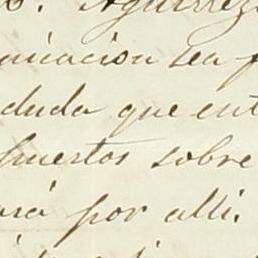 Aguirrez
nicacion sea p
duda que ent
puertos sobre
ará por alli.